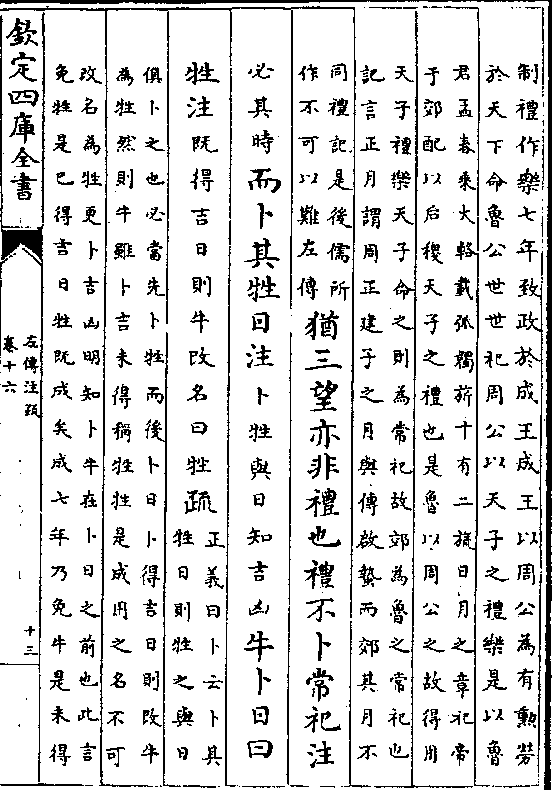 制禮作樂七年致政於成王成王以周公為有勲勞
於天下命魯公世世祀周公以天子之禮樂是以魯
君孟春乘大輅載弧韣旂十有二旒日月之章祀帝
于郊配以后稷天子之禮也是魯以周公之故得用
天子禮樂天子命之則為常祀故郊為魯之常祀也
記言正月謂周正建子之月與傳啟蟄而郊其月不
同禮記是後儒所
作不可以難左傳
猶三望亦非禮也禮不卜常祀注
必其時而卜其牲日注卜牲與日知吉凶牛卜日曰
牲注既得吉日則牛改名曰牲疏
正義曰卜云卜其
牲日則牲之與日
俱卜之也必當先卜牲而後卜日卜得吉日則改牛
為牲然則牛雖卜吉未得稱牲牲是成用之名不可
改名為牲更卜吉凶明知卜牛在卜日之前也此言
免牲是已得吉日牲既成矣成七年乃免牛是未得
欽定四庫全書
左傳注疏
卷十六
十三